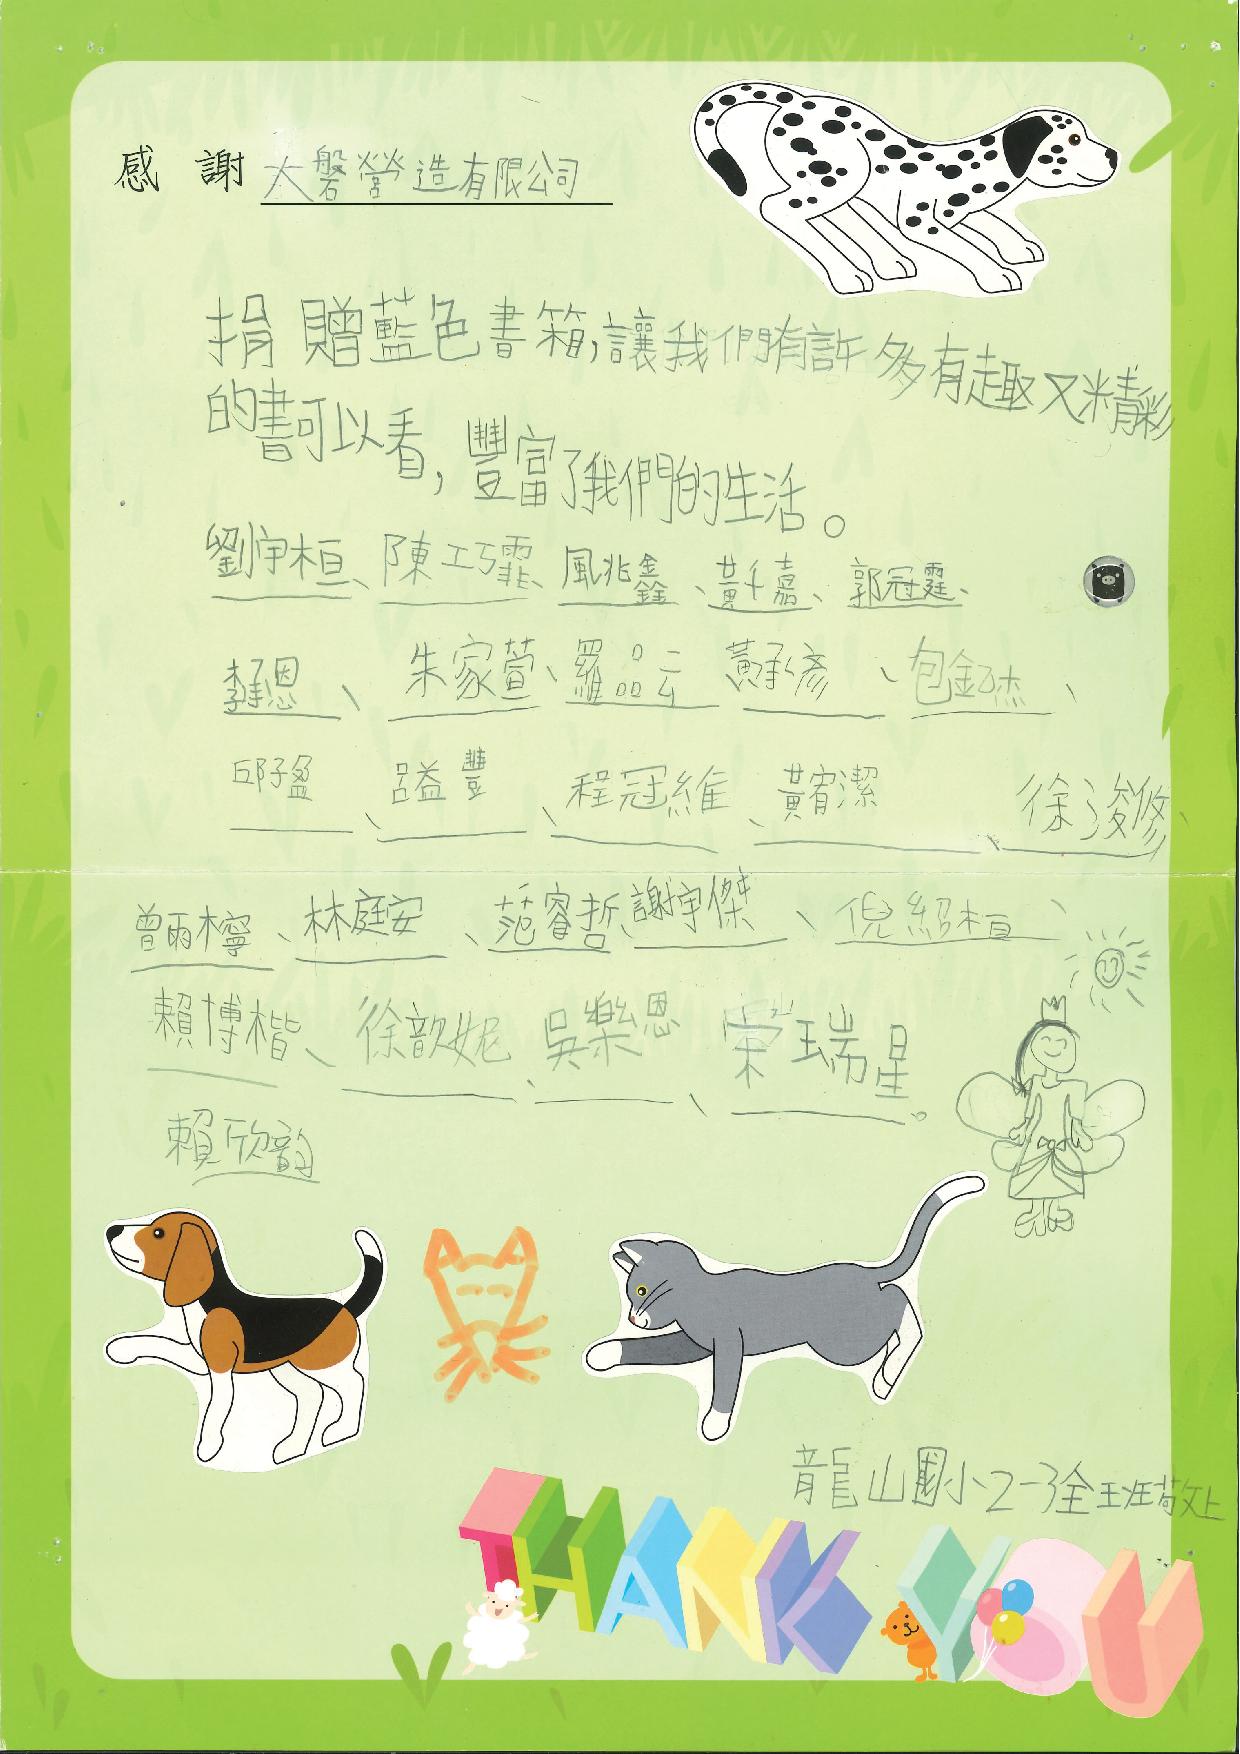 感 謝 大磐營造有限公司
捐贈藍色書箱,讓我們有許多有趣又精彩
的書可以看,豐富了我們的生活。
劉宇桓、陳工巧霏、風兆鑫、黃千嘉、郭冠霆、
李承恩、朱家萱、羅品云、黃承彥、包金杰、
邱子盈、呂益豐、程冠維、黃宥潔、徐浚修、
曾雨檸、林庭安、范睿哲、謝宇傑、倪紹桓、
賴博楷、徐歆妮、吳樂恩、瑞星。
賴欣韵
龍山國小2-3全班敬上
THANK YOU